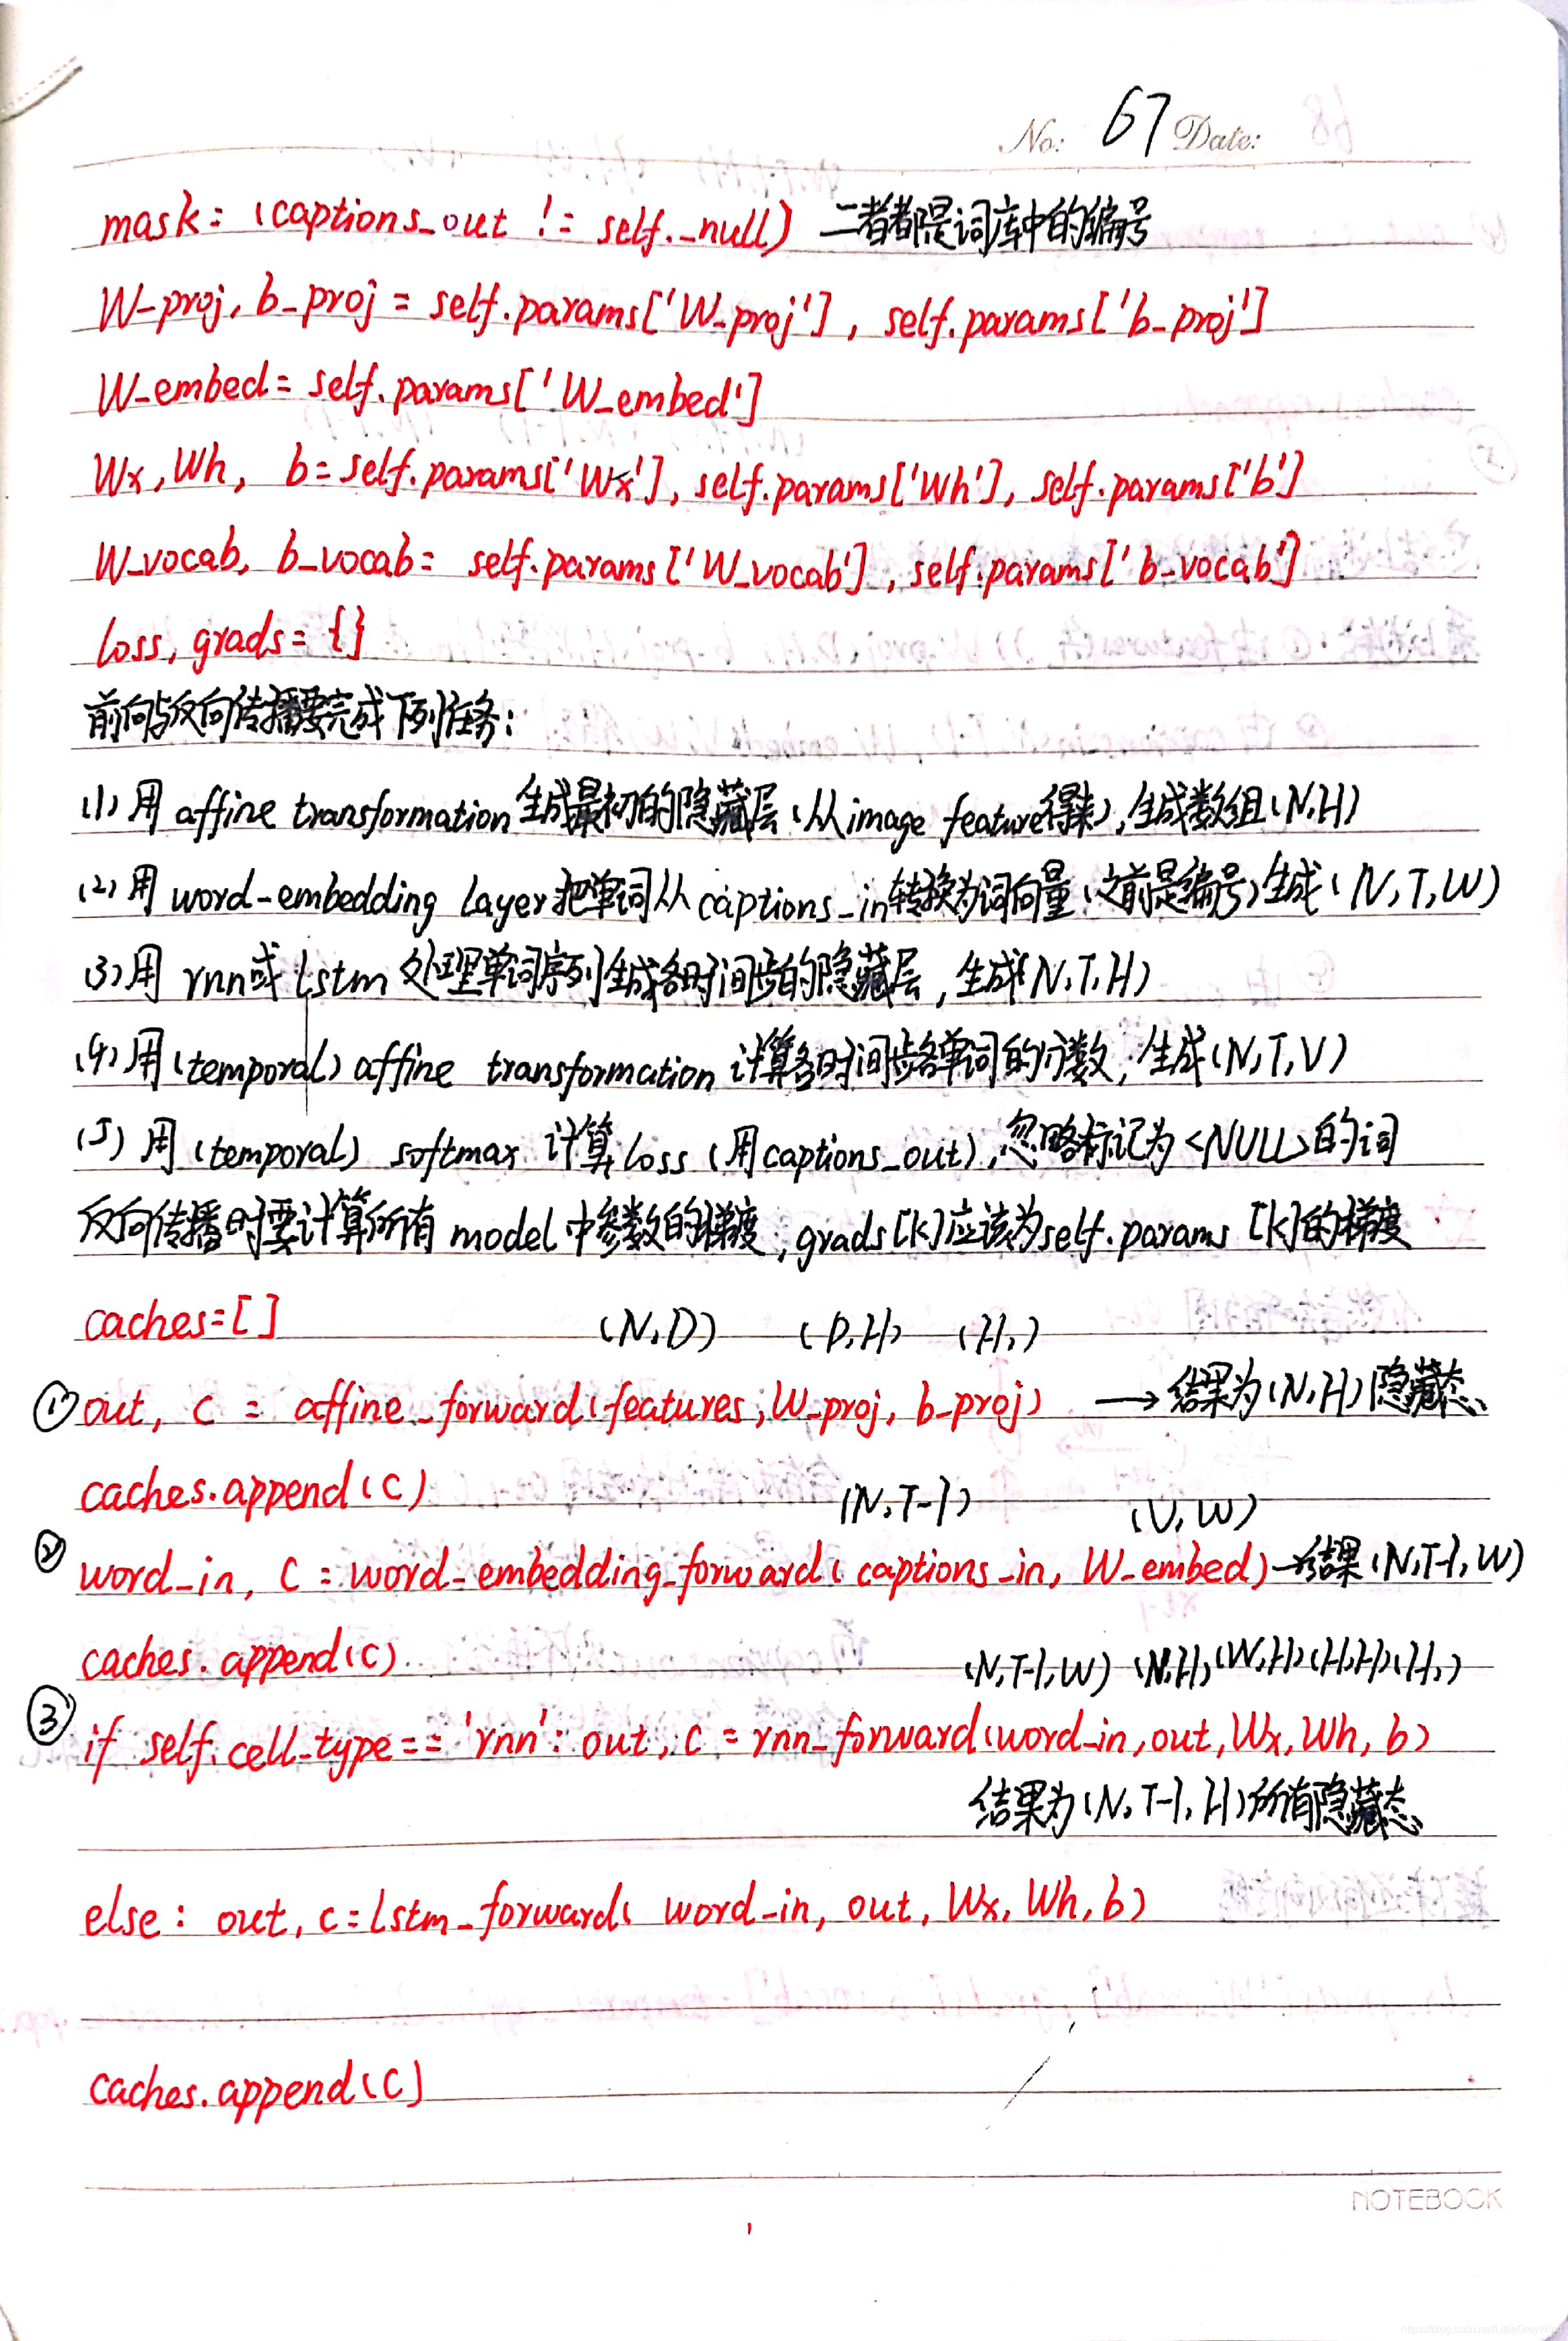 No: 67 Date:
mask = (captions_out != self._null) 二者都是词库中的编号
W_proj, b_proj = self.params['W_proj'], self.params['b_proj']
W_embed = self.params['W_embed']
Wx, Wh, b = self.params['Wx'], self.params['Wh'], self.params['b']
W_vocab, b_vocab = self.params['W_vocab'], self.params['b_vocab']
loss, grads = {}
前向与反向传播要完成下列任务:
(1) 用 affine transformation 生成最初的隐藏层(从image feature得来),生成数组(N,H)
(2) 用 word-embedding layer把单词从captions_in转换为词向量(之前是编号)生成(N,T,W)
(3) 用 rnn或lstm 处理单词序列生成各时间步的隐藏层,生成(N,T,H)
(4) 用(temporal) affine transformation 计算各时间步各单词的分数,生成(N,T,V)
(5) 用(temporal) softmax 计算loss(用captions_out),忽略标记为<NULL>的词
反向传播时要计算所有model中参数的梯度,grads[k]应该为self.params[k]的梯度
caches=[] (N,D) (D,H) (H,)
① out, c = affine_forward(features, W_proj, b_proj) → 结果为(N,H)隐藏态
caches.append(c) (N,T-1) (V,W)
② word_in, c = word_embedding_forward(captions_in, W_embed) →结果(N,T-1,W)
caches.append(c) (N,T-1,W) (N,H) (W,H) (H,H) (H,)
③ if self.cell_type == 'rnn': out, c = rnn_forward(word_in, out, Wx, Wh, b)
结果为(N,T-1,H)所有隐藏态
else: out, c = lstm_forward(word_in, out, Wx, Wh, b)
caches.append(c)
NOTEBOOK